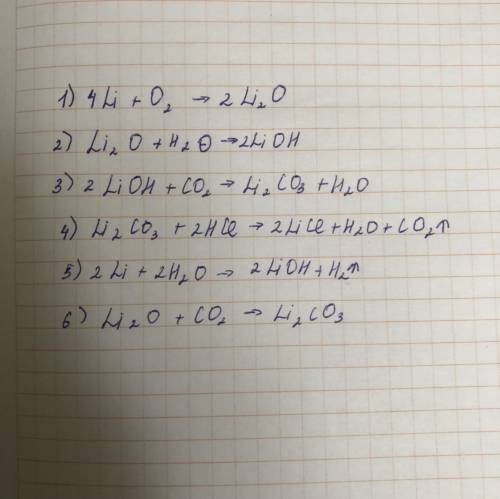 1) 4Li + O₂ → 2Li₂O
2) Li₂O + H₂O → 2LiOH
3) 2LiOH + CO₂ → Li₂CO₃ + H₂O
4) Li₂CO₃ + 2HCl → 2LiCl + H₂O + CO₂↑
5) 2Li + 2H₂O → 2LiOH + H₂↑
6) Li₂O + CO₂ → Li₂CO₃